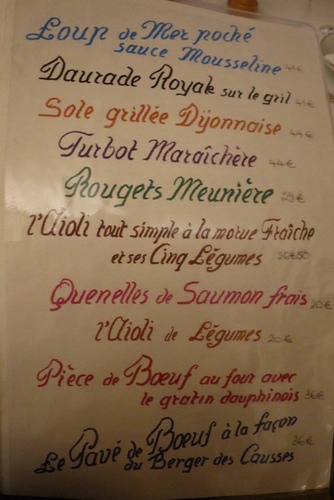 Loup de Mer poché
sauce Mousseline
Daurade Royale sur le gril 41€
Sole grillée Dijonnaise 44€
Turbot Maraîchère 44€
Rougets Meunière
l'Aïoli tout simple à la morue Fraîche
et ses Cinq Légumes
Quenelles de Saumon frais 20€
l'Aïoli de Légumes 20€
Pièce de Bœuf au four avec
le gratin dauphinois 36€
Le Pavé de Bœuf à la façon 36€
du Berger des Causses